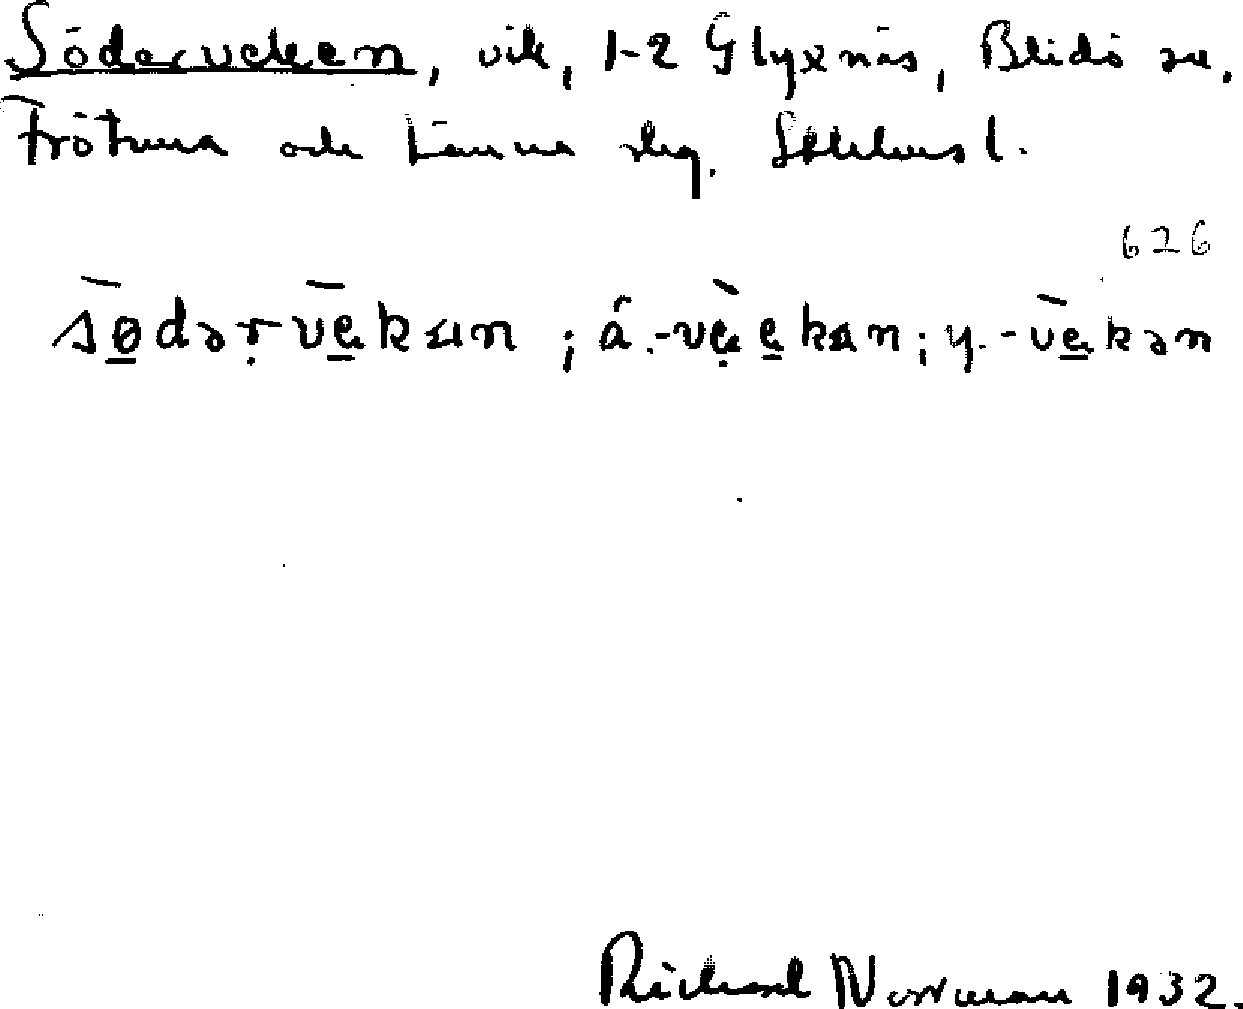 Söderveken, vik, 1-2 Glyxnäs, Blidö sn,
Frötuna och Länna skg. Sthlms l.
626
södərvekan ; ä.-veekan ; y.-vekən
Richard Norrman 1932.